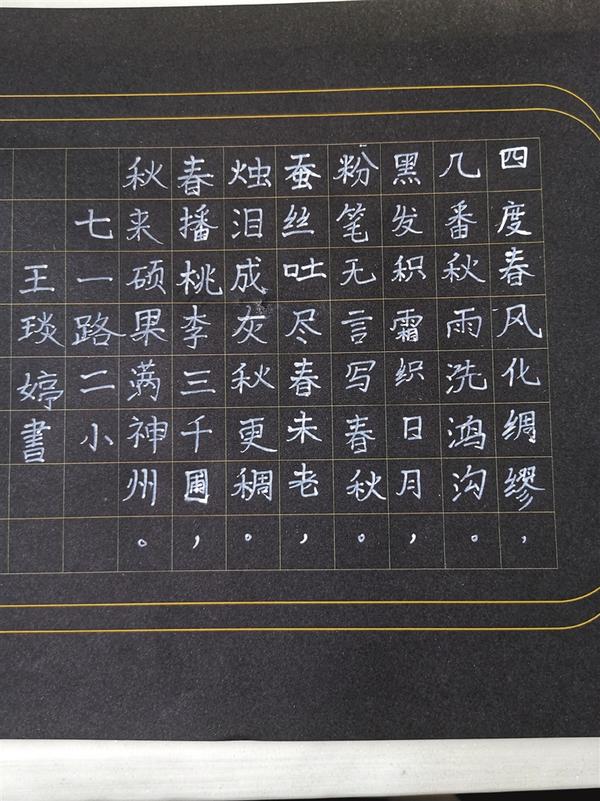 四度春风化绸缪，
几番秋雨洗鸿沟。
黑发积霜织日月，
粉笔无言写春秋。
蚕丝吐尽春未老，
烛泪成灰秋更稠。
春播桃李三千圃，
秋来硕果满神州。
七一路二小
王琰婷書